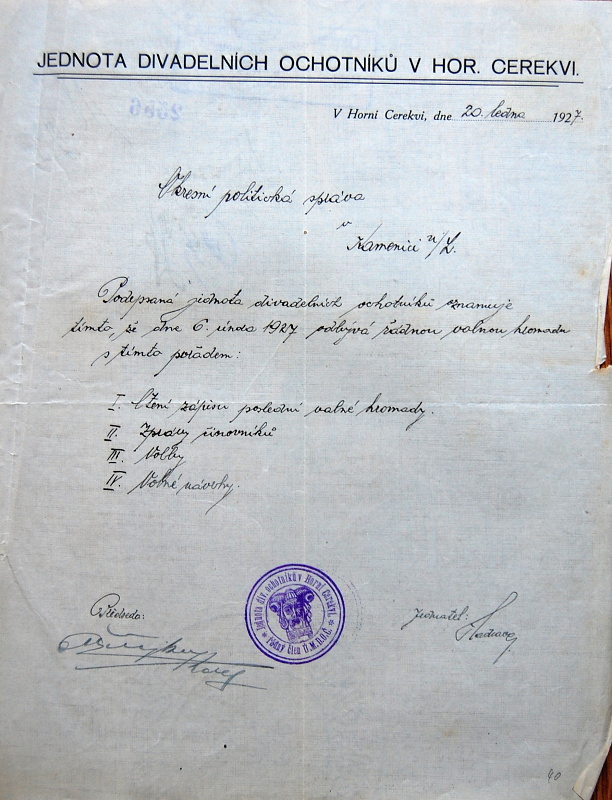 JEDNOTA DIVADELNÍCH OCHOTNÍKŮ V HOR. CEREKVI.
V Horní Cerekvi, dne 20. ledna 1927.
Okresní politická správa
v
Kamenici n/L.
Podepsaná jednota divadelních ochotníků oznamuje
tímto, že dne 6. února 1927 odbývá řádnou valnou hromadu
s tímto pořadem:
I. Čtení zápisu poslední valné hromady.
II. Zprávy činovníků
III. Volby
IV. Volné návrhy.
Předseda:
Jednatel:
Jednota div. ochotníků v Horní Cerekvi.
Řádný člen Ú.M.D.O.Č.
40